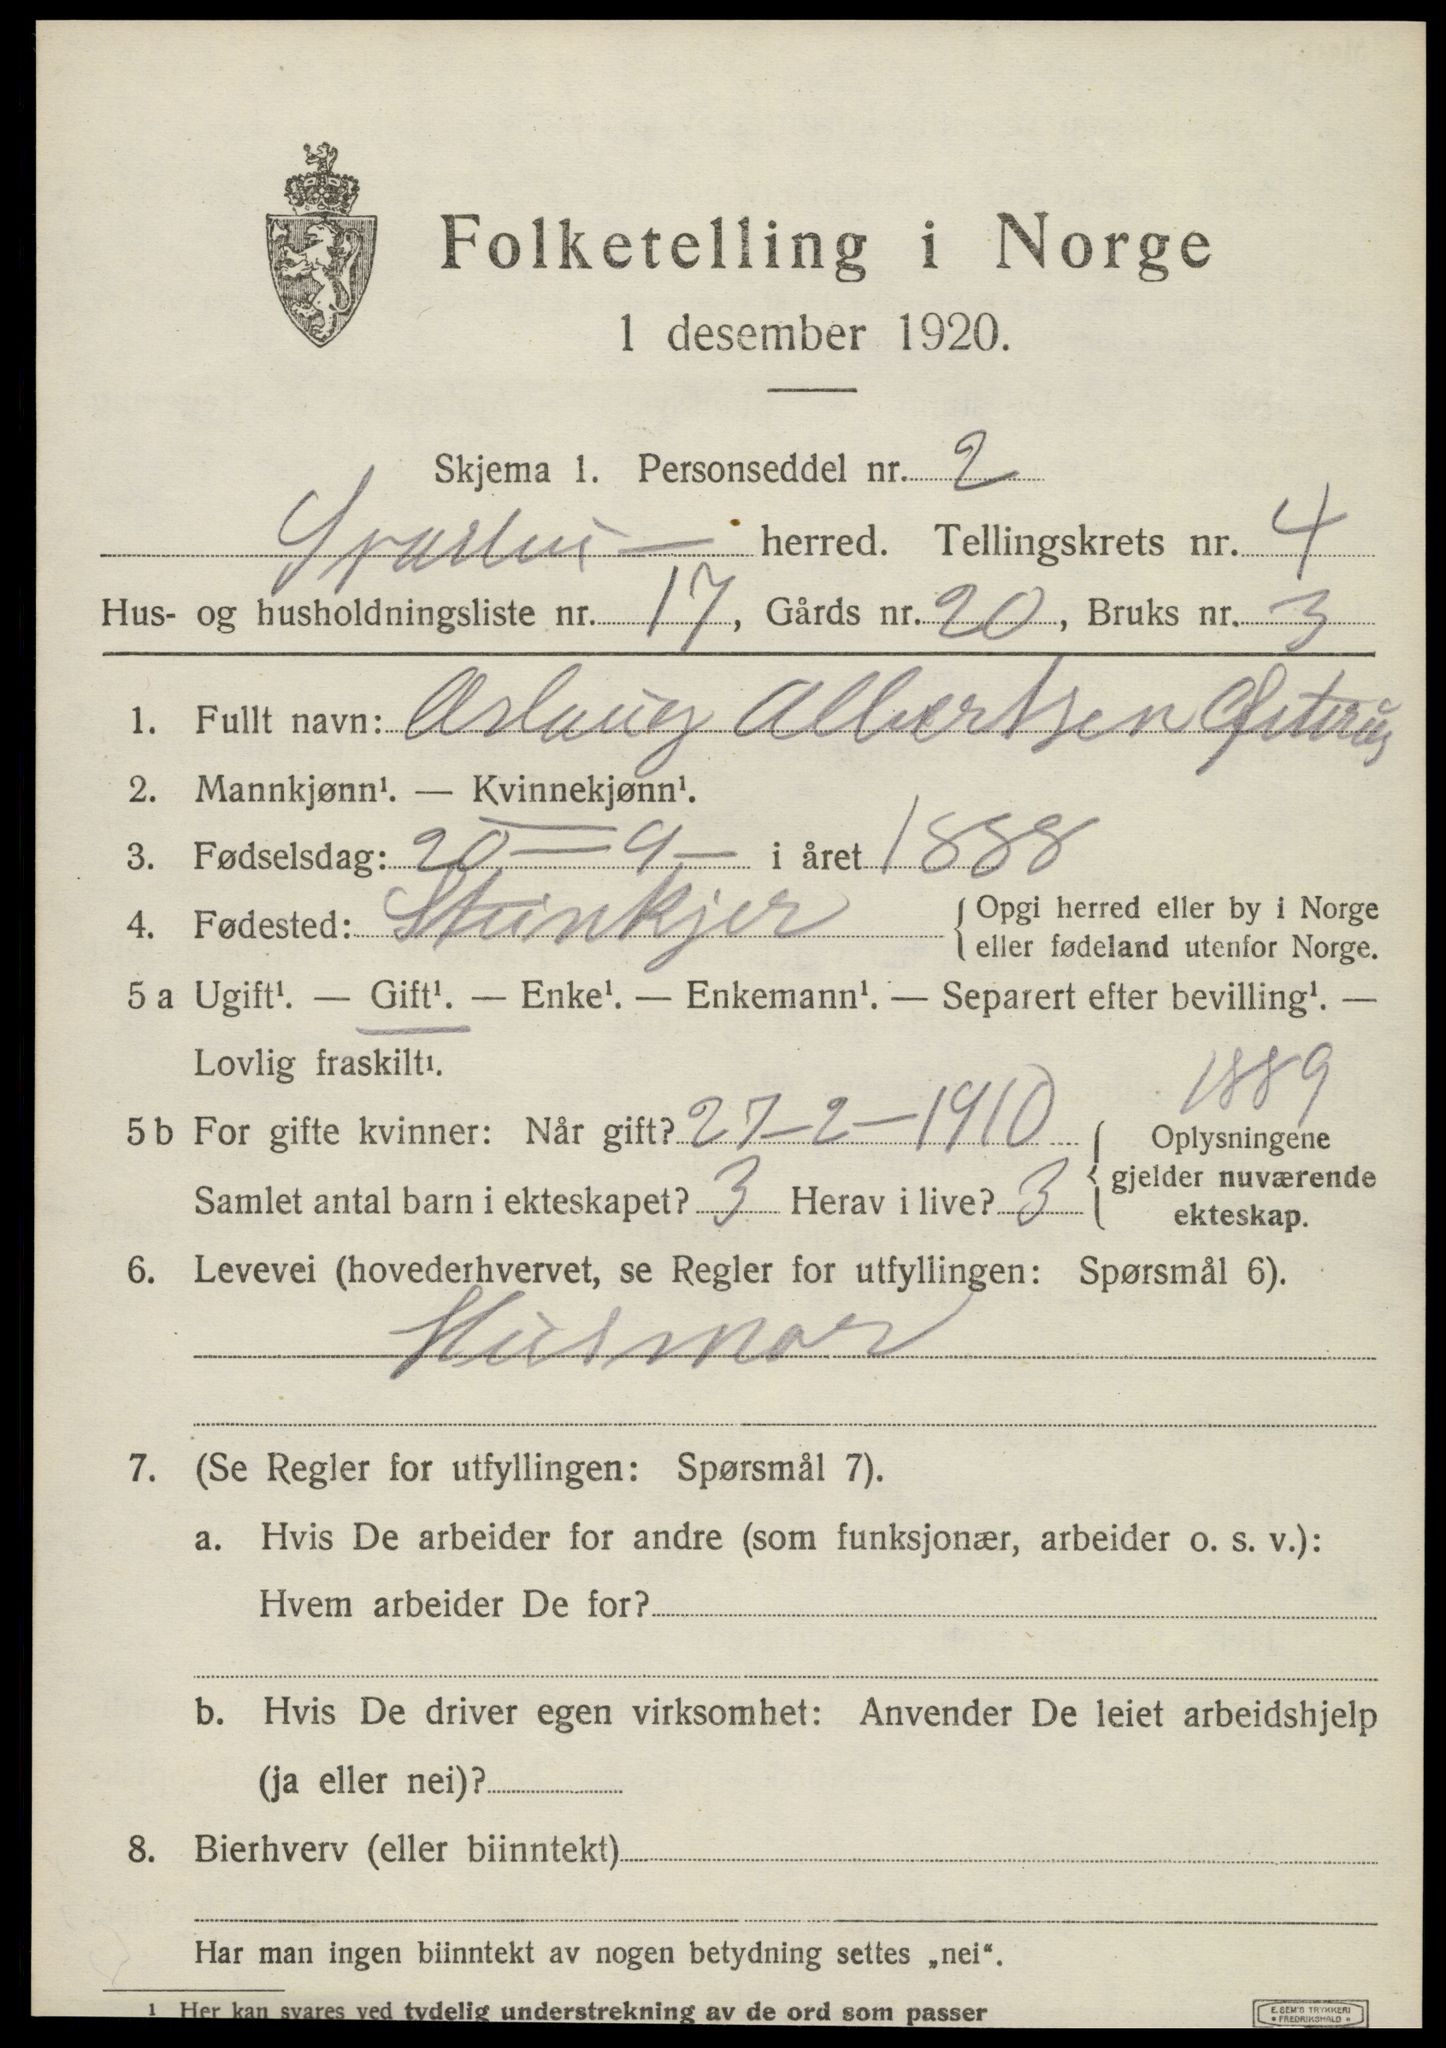 Folketelling i Norge
1 desember 1920.
Skjema 1. Personseddel nr. 2
Sparbu — herred. Tellingskrets nr. 4
Hus- og husholdningsliste nr. 17, Gårds nr. 20, Bruks nr. 3
1. Fullt navn: Aslaug Albertsen
2. Mannkjønn¹. — Kvinnekjønn¹.
3. Fødselsdag: 20 — 9 — i året 1888
4. Fødested: Steinkjer { Opgi herred eller by i Norge
eller fødeland utenfor Norge.
5 a Ugift¹. — Gift¹. — Enke¹. — Enkemann¹. — Separert efter bevilling¹. —
Lovlig fraskilt¹.
1889
5 b For gifte kvinner: Når gift? 27-2-1910 { Oplysningene
gjelder nuværende
Samlet antal barn i ekteskapet? 3 Herav i live? 3
ekteskap.
6. Levevei (hovederhvervet, se Regler for utfyllingen: Spørsmål 6).
Husmor
7. (Se Regler for utfyllingen: Spørsmål 7).
a. Hvis De arbeider for andre (som funksjonær, arbeider o. s. v.):
Hvem arbeider De for?
b. Hvis De driver egen virksomhet: Anvender De leiet arbeidshjelp
(ja eller nei)?
8. Bierhverv (eller biinntekt)
Har man ingen biinntekt av nogen betydning settes „nei“.
1 Her kan svares ved tydelig understrekning av de ord som passer
E. SEM'S TRYKKERI
FREDRIKSHALD